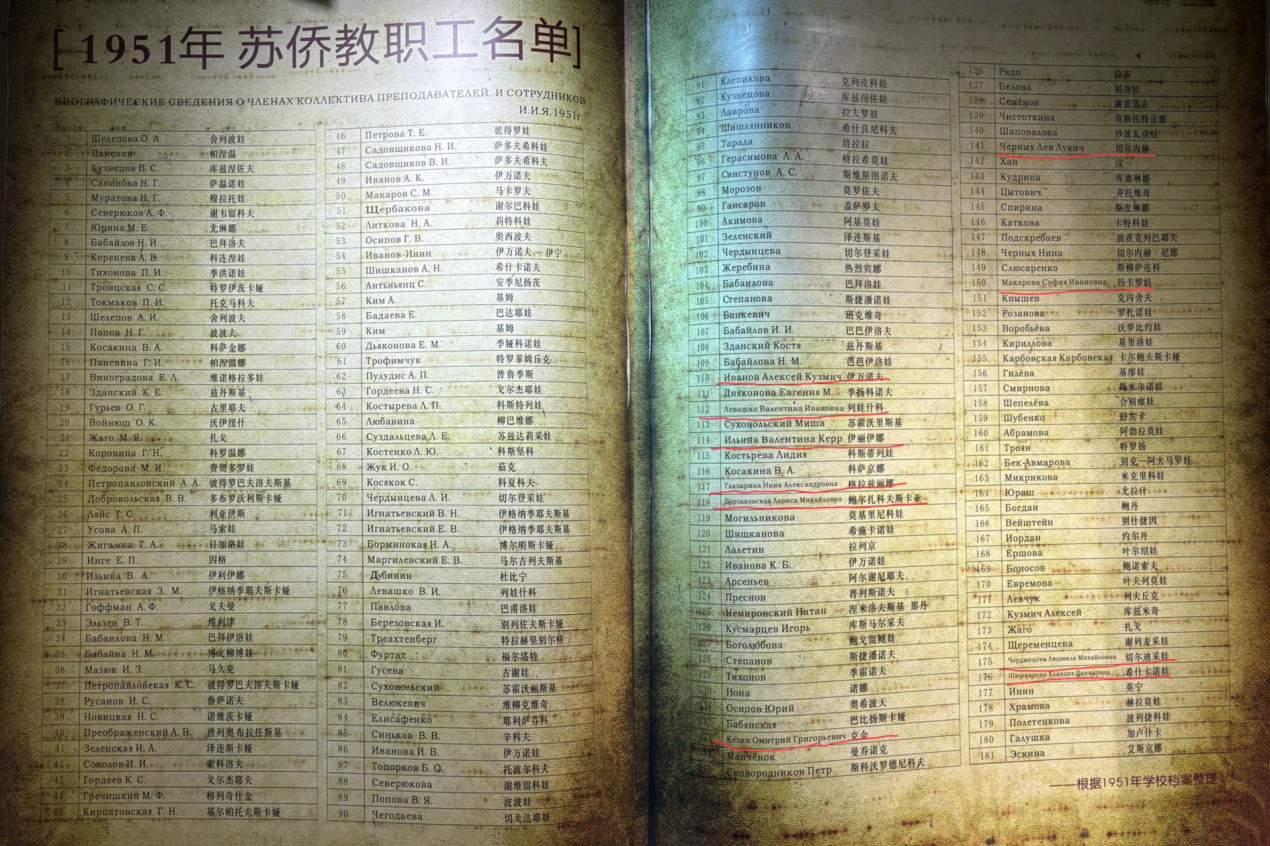 [ 1951年 苏侨教职工名单]
БИОГРАФИЧЕСКИЕ СВЕДЕНИЯ О ЧЛЕНАХ КОЛЛЕКТИВА ПРЕПОДАВАТЕЛЕЙ. И СОТРУДНИКОВ
И.И.Я.1951г
1 Шелепова О. А. 舍列波娃
2 Паневин 帕涅温
3 Кузнецов В. С. 库兹涅佐夫
4 Савинова Н. Г. 萨温诺娃
5 Муратова Н. Г. 穆拉托娃
6 Северюков А. Ф. 谢韦留科夫
7 Юрина М. Е. 尤琳娜
8 Бабайлов Н. И. 巴拜洛夫
9 Коренева А. В. 科连涅娃
10 Тихонова П. И. 季洪诺娃
11 Троицкая С. С. 特罗伊茨卡娅
12 Токмаков П. И. 托克马科夫
13 Шелепов А. И. 舍列波夫
14 Попов Н. Г. 波波夫
15 Косакина В. А. 科萨金娜
16 Паневина Г. И. 帕涅温娜
17 Виноградова Е. Л. 维诺格拉多娃
18 Зданский К. Е. 兹丹斯基
19 Гурьев О. Г. 古里耶夫
20 Войнюш О. К. 沃伊纽什
21 Жаго М. Я. 扎戈
22 Коровина Г. Н. 科罗温娜
23 Федорова М. И. 费奥多罗娃
24 Петропавловский А. А. 彼得罗巴夫洛夫斯基
25 Добровольская В. В. 多布罗沃利斯卡娅
26 Ляйс Т. С. 利亚伊斯
27 Усова А. П. 乌索娃
28 Жигалова Т. А. 日加洛娃
29 Инге Е. П. 因格
30 Ильина В. А. 伊利伊娜
31 Игнатьевская З. М. 伊格纳季耶夫斯卡娅
32 Гоффман А. Ф. 戈夫曼
33 Эльзен В. Т. 埃利津
34 Бабаилова Н. М. 巴拜伊洛娃
35 Бабайва Н. М.
36 Мазюк И. З. 马久克
37 Петропавловская К. С. 彼得罗巴夫洛夫斯卡娅
38 Русанов И. С. 鲁萨诺夫
39 Новицкая Н. С. 诺维茨卡娅
40 Преображенский А. В. 普列奥布拉任斯基
41 Зеленская И. А. 泽连斯卡娅
42 Соколов И. И. 索科洛夫
43 Гордеев К. С. 戈尔杰耶夫
44 Гречишкий М. Ф. 格列奇什金
45 Кирпатовская Г. Н. 基尔帕托夫斯卡娅
46 Петрова Т. Е. 彼得罗娃
47 Садовщикова Н. И. 萨多夫希科娃
48 Садовщиков В. И. 萨多夫希科夫
49 Иванов А. К. 伊万诺夫
50 Макаров С. М. 马卡罗夫
51 Щербакова 谢尔巴科娃
52 Литкова Н. А. 莉特科娃
53 Осипов Г. В. 奥西波夫
54 Иванов-Инин 伊万诺夫—伊宁
55 Шишканов А. Н. 希什卡诺夫
56 Антьяньц С. 安季尼扬茨
57 Ким А. 基姆
58 Бадаева Е. 巴达耶娃
59 Ким 基姆
60 Дьяконова Е. М. 季娅科诺娃
61 Трофимчук 特罗菲姆丘克
62 Пулудис А. П. 普鲁季斯
63 Гордеева Н. С. 戈尔杰耶娃
64 Костырева Л. П. 科斯特列娃
65 Любавина 柳巴维娜
66 Суздальцева Л. Е. 苏兹达莉采娃
67 Костенко Л. Ю. 科斯坚科
68 Жук И. О. 茹克
69 Косякок С. 科夏科夫
70 Чердынцева Л. И. 切尔登采娃
71 Игнатьевский В. Н. 伊格纳季耶夫斯基
72 Игнатьевский Е. В. 伊格纳季耶夫斯基
73 Борминокая Н. А. 博尔明斯卡娅
74 Маргилевский Е. В. 马尔吉列夫斯基
75 Дубинин 杜比宁
76 Левашко В. И. 列娃什科
77 Павлова 巴甫洛娃
78 Березовская И. 别列佐夫斯卡娅
79 Треахтенберг 特拉赫坚别尔格
80 Фуртат 福尔塔特
81 Гусева 古谢娃
82 Суховольский 苏霍沃丽斯基
83 Велюкевич 维柳克维奇
84 Елисафенко 耶利萨芬科
85 Синьков В. В. 辛科夫
86 Иванова И. В. 伊万诺娃
87 Топорков Б. О. 托波尔科夫
88 Северюкова 谢维留科娃
89 Попова В. Я. 波波娃
90 Чегодаева 切戈达耶娃
91 Клепикова 克列皮科娃
92 Кузнецова 库兹涅佐娃
93 Лаврова 拉夫罗娃
94 Шишлянников 希什良尼科夫
95 Тарала 塔拉拉
96 Герасимова Л. А. 格拉希莫娃
97 Свистунов А. С. 斯维斯图诺夫
98 Морозов 莫罗佐夫
99 Гансаров 盖萨罗夫
100 Акимова 阿基莫娃
101 Зеленский 泽连斯基
102 Чердынцева 切尔登采娃
103 Жеребина 热烈宾娜
104 Бабаилова 巴拜洛娃
105 Степанова 斯捷潘诺娃
106 Банкевич 班克维奇
107 Бабайлов И. И. 巴巴伊洛夫
108 Зданский Костя 兹丹斯基
109 Бабайлова Н. М. 芭芭伊洛娃
110 Иванов Алексей Кузмич 伊万诺夫
111 Дияконова Евгения М. 季扬科诺夫
112 Левашко Валентина Ивановна 列娃什科
113 Суховольский Миша 苏霍沃里斯基
114 Ильина Валентина Керр 伊丽伊娜
115 Костырева Лидия 科斯蒂列娃
116 Косакина В. А. 科萨京娜
117 Глазырина Нина Александровна 格拉兹丽娜
118 Борзаковская Лариса Михайловна 鲍尔扎科夫斯卡亚
119 Могильникова 莫基里尼科娃
120 Шишканова 希施卡诺娃
121 Лалетин 拉列京
122 Иванова К. Б. 伊万诺娃
123 Арсеньев 阿尔谢尼耶夫
124 Преснов 普列斯诺夫
125 Немировский Натан 涅米洛夫斯基 那丹
126 Кусмарцев Игорь 库斯马尔采夫
127 Боголюбова 鲍戈留鲍娃
128 Степанов 斯捷潘诺夫
129 Тихонов 季霍诺夫
130 Нона 诺娜
Осипов Юрий 奥希波夫
Бабянская 巴比扬斯卡娅
Кезин Омитрий Григорьевич 克金
Манченок 曼乔诺克
Сковородников Петр 斯科沃罗德尼科夫
136 Радо 拉多
137 Белова 别洛娃
138 Семёнов 谢苗诺夫
139 Чистоткина 奇斯托特京娜
140 Шаповалова 沙波瓦洛娃
141 Черных Лев Лукич 切尔内赫
142 Хан 汉
143 Кудрина 库德琳娜
144 Цытович 齐托维奇
145 Спирина 斯皮琳娜
146 Каткова 卡特科娃
147 Подскребаев 波茨克列巴耶夫
148 Черных Нина 切尔内赫·尼娜
149 Слюсаренко 斯柳萨连科
150 Макарова София Ивановна 玛卡罗娃
151 Кнышев 克内舍夫
152 Розанова 罗扎诺娃
153 Воробьёва 沃罗比约娃
154 Кириллова 基里洛娃
155 Карбовская Карбовская 卡尔鲍夫斯卡娅
156 Гилёва 基廖娃
157 Смирнова 斯米尔诺娃
158 Шепелёва 舍别廖娃
159 Шубенко 舒宾卡
160 Абрамова 阿勃拉莫娃
161 Троян 特罗扬
162 Бек-Авмарова 别克—阿夫马罗娃
163 Микрикова 米克里科娃
164 Юраш 尤拉什
165 Богдан 鲍丹
166 Вейштейн 别什捷因
167 Иордан 约尔丹
168 Ершова 叶尔绍娃
169 Боносов 鲍诺索夫
170 Евремова 叶夫列莫娃
171 Левчук 列夫丘克
172 Кузмич Алексей 库兹米奇
173 Жаго 扎戈
174 Щеременцева 谢列麦采娃
175 Чердинцева Людмила Михайловна 切尔迪采娃
176 Шишканова Клавдия Даниловна 希什卡诺娃
177 Инин 英宁
178 Храмова 赫拉莫娃
179 Полетенкова 波列捷科娃
180 Галушка 加卢什卡
181 Эскина 艾斯京娜
——根据1951年学校档案整理